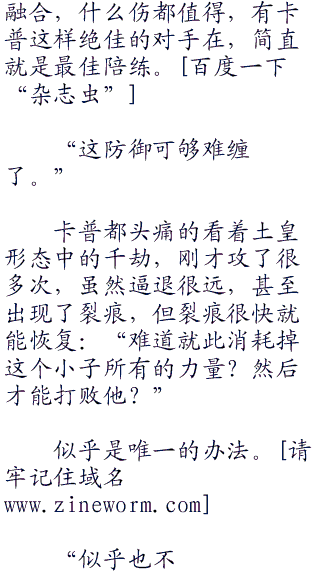 融合，什么伤都值得，有卡
普这样绝佳的对手在，简直
就是最佳陪练。[百度一下
“杂志虫”]
“这防御可够难缠
了。”
卡普都头痛的看着土皇
形态中的千劫，刚才攻了很
多次，虽然逼退很远，甚至
出现了裂痕，但裂痕很快就
能恢复：“难道就此消耗掉
这个小子所有的力量？然后
才能打败他？”
似乎是唯一的办法。[请
牢记住域名
www.zineworm.com]
“似乎也不